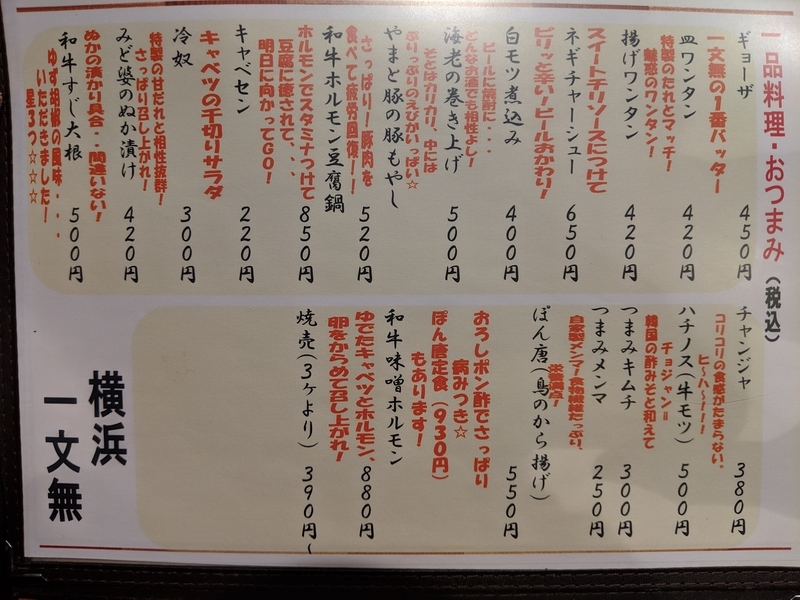 一品料理・おつまみ(税込)
ギョーザ 450円
一文無の1番バッター
皿ワンタン 420円
特製のたれとマッチ!
魅惑のワンタン!
揚げワンタン 420円
スイートチリソースにつけて
ネギチャーシュー 650円
ピリッと辛い!ビールおかわり!
白モツ煮込み 400円
ビールに焼酎に・・・
どんなお酒でも相性よし!
海老の巻き上げ 500円
そとはカリカリ、中には
ぷりっぷりのえびがいっぱい☆
やまと豚の豚もやし 520円
さっぱり!豚肉を
食べて疲労回復!!
和牛ホルモン豆腐鍋 850円
ホルモンでスタミナつけて
豆腐に癒されて、、、
明日に向かってGO!
キャベセン 220円
キャベツの千切りサラダ
冷奴 300円
特製の甘だれと相性抜群!
さっぱり召し上がれ!
みど婆のぬか漬け 420円
ぬかの漬かり具合・・間違いない!
和牛すじ大根 500円
ゆず胡椒の風味・・・
いただきました!
星3つ☆☆☆
チャンジャ 380円
コリコリの食感がたまらない。
ヒ〜ハ〜!!!!
ハチノス(牛モツ) 500円
チョジャン=
韓国の酢みそと和えて
つまみキムチ 300円
つまみメンマ 250円
自家製メンマ!食物繊維たっぷり、
栄養満点!
ぽん唐(鳥のから揚げ) 550円
おろしポン酢でさっぱり
病みつき☆
ぽん唐定食(930円)
もあります!
和牛味噌ホルモン 880円
ゆでたキャベツとホルモン、
卵をからめて召し上がれ!
焼売(3ヶより) 390円〜
横浜
一文無